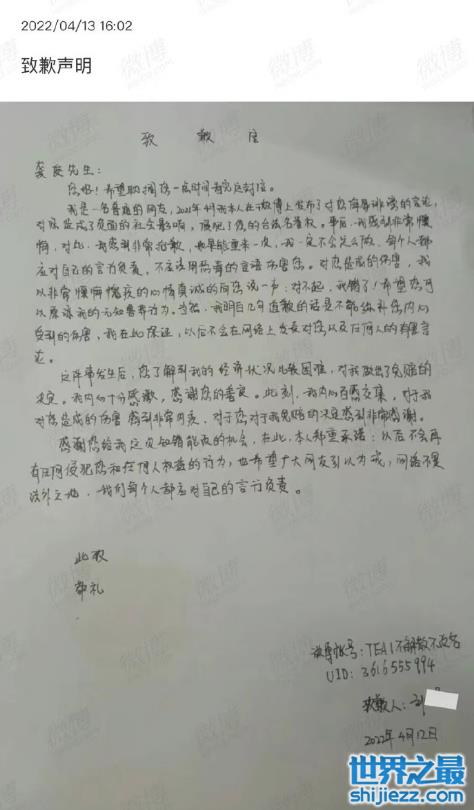 2022/04/13 16:02
致歉声明
致歉信
龚俊先生:
您好!希望耽搁您一点时间看完这封信。
我是一名普通的网友,2021年4月我本人在微博上发布了对您侮辱诽谤的言论,
对您造成了负面的社会影响,侵犯了您的合法名誉权。事后,我感到非常懊
悔,对此,我感到非常抱歉,如果能重来一次,我一定不会怎么做。每个人都
应对自己的言行负责,不应该用恶毒的言语伤害您。对您造成的伤害,我
以非常懊悔愧疚的心情真诚的向您说一声:对不起,我错了!希望您可
以原谅我的无知鲁莽行为。当然,我明白几句道歉的话是不能弥补您内心
受到的伤害,我在此保证,以后不会在网络上发表对您以及任何人的有害言
论。
这件事发生后,您了解到我的经济状况比较困难,对我做出了免赔的
决定。我内心十分感激,感谢您的善良。此刻,我内心百感交集,对于我
对您造成的伤害感到非常内疚,对于您对于我免赔的决定感到非常感谢。
感谢您给我这次知错能改的机会,在此,本人郑重承诺:以后不会再
有任何侵犯您和任何人权益的行为,也希望广大网友引以为戒,网络不是
法外之地,我们每个人都应对自己的言行负责。
此致
敬礼
微博账号:TEA1不解散不改名
UID:3616555994
致歉人:
2022年4月12日
世界之最
shijiezz.com